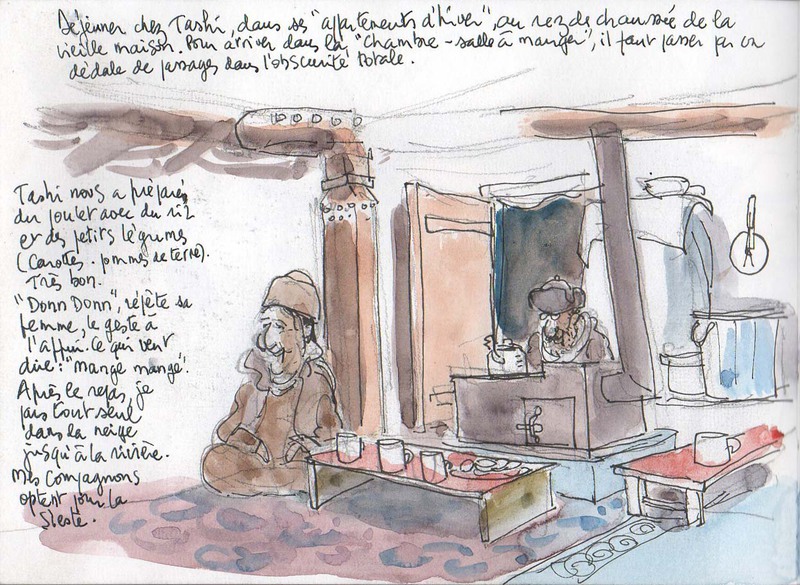 Déjeuner chez Tashi, dans ses "appartements d'hiver", au rez de chaussée de la
vieille maison. Pour arriver dans la "chambre - salle à manger", il faut passer par un
dédale de passages dans l'obscurité totale.
Tashi nous a préparé
du poulet avec du riz
et des petits légumes
(carottes. pommes de terre).
Très bon.
"Donn Donn", répète sa
femme, le geste à
l'appui. Ce qui veut
dire : "mange mange".
Après le repas, je
pars tout seul
dans la neige
jusqu'à la rivière.
Mes compagnons
optent pour la
sieste.